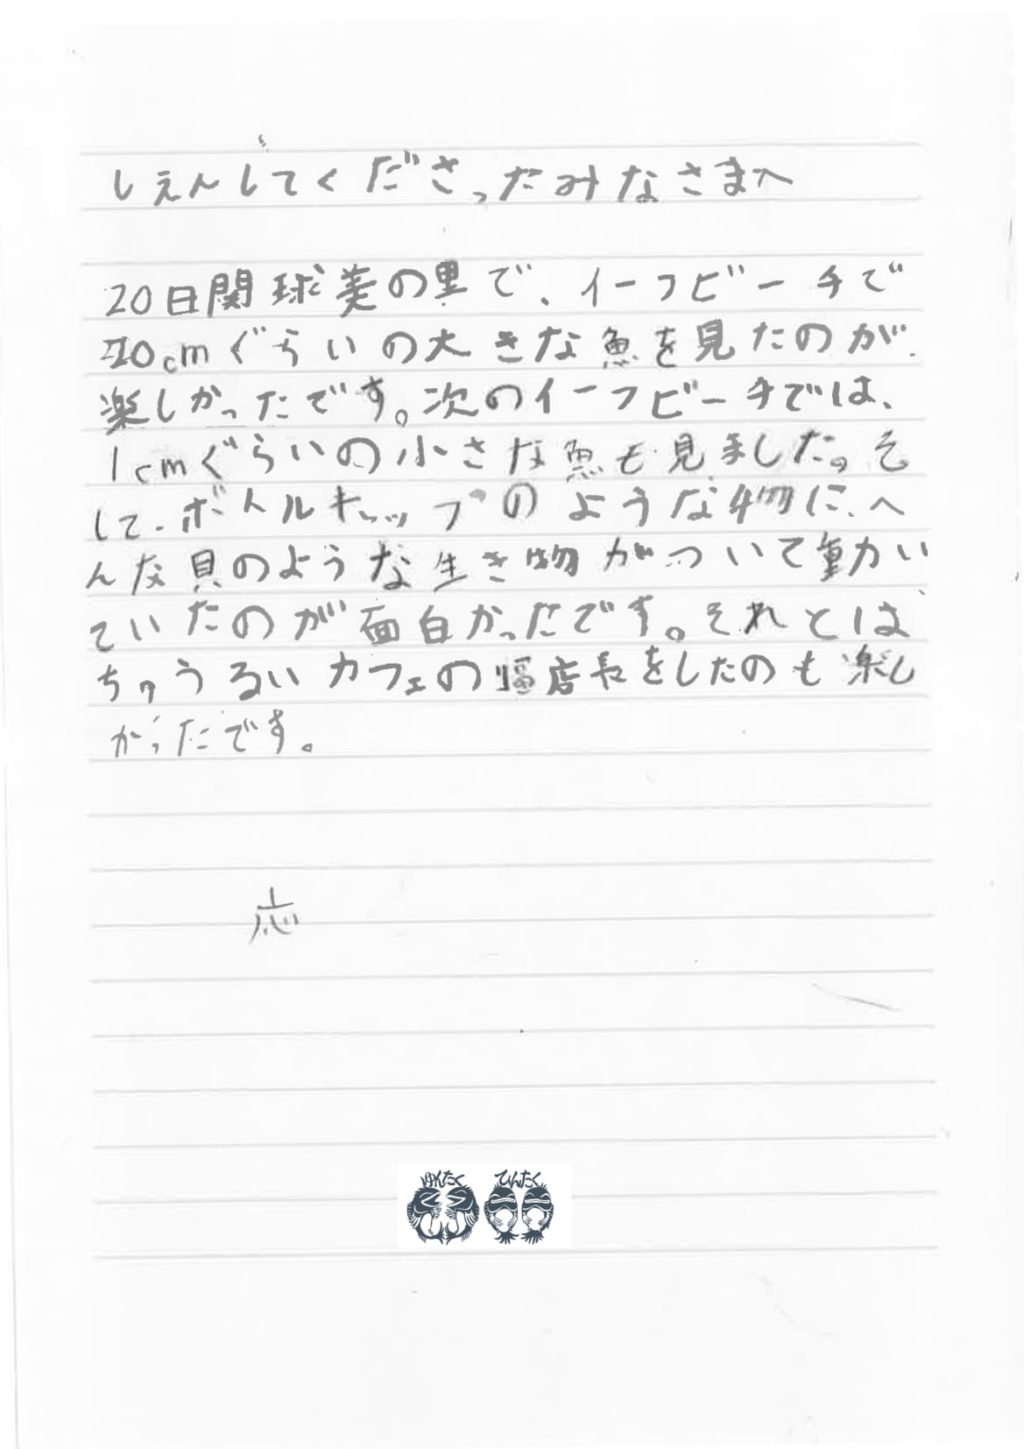 しえんしてくださったみなさまへ
20日間球美の里で、イーフビーチで
20cmぐらいの大きな魚を見たのが
楽しかったです。次のイーフビーチでは、
1cmぐらいの小さな魚も見ました。そ
して、ボトルキャップのような物に、へ
んな貝のような生き物がついて動い
ていたのが面白かったです。それとは
ちゅうるいカフェの副店長をしたのも楽し
かったです。
ゆんたく ひんたく